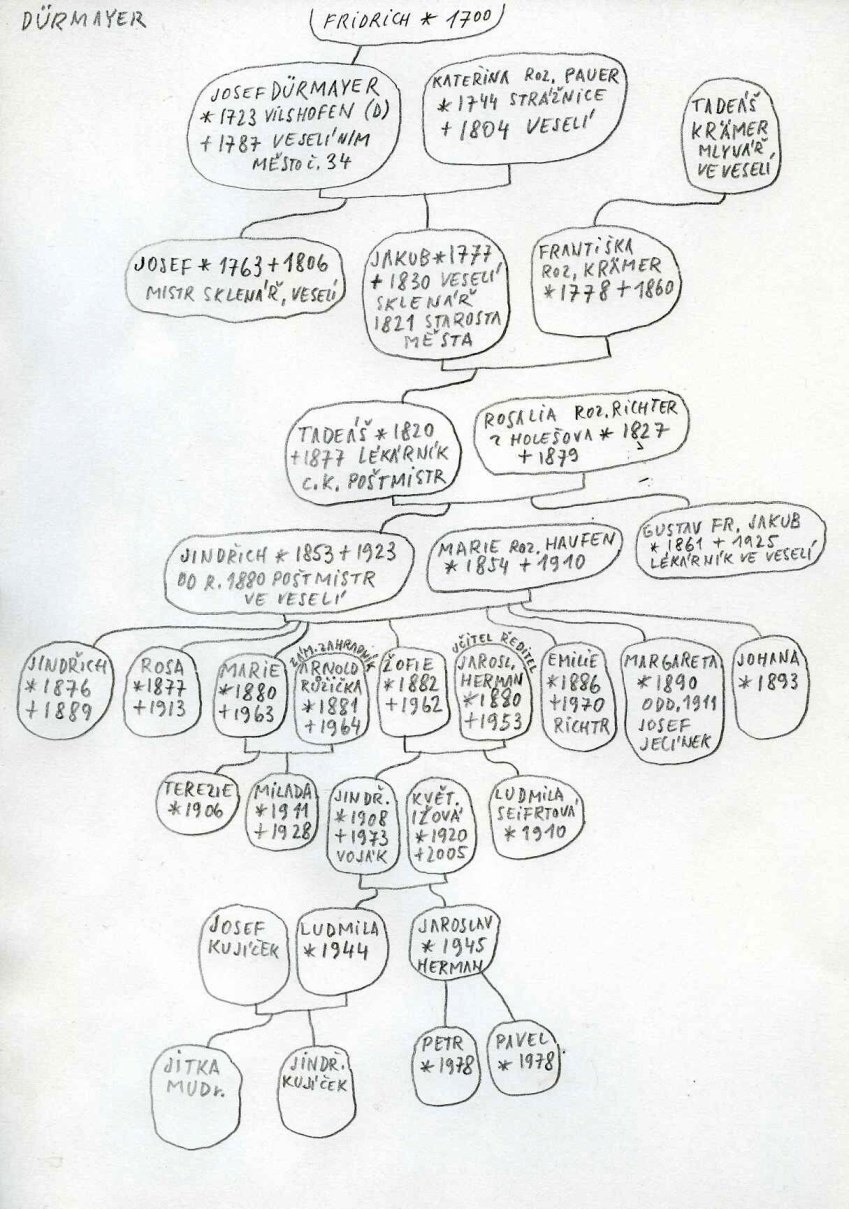 DÜRMAYER
FRIDRICH * 1700
JOSEF DÜRMAYER
* 1723 VILSHOFEN (D)
+ 1787 VESELÍ N/M
MĚSTO č. 34
KATEŘINA ROZ. PAUER
* 1744 STRÁŽNICE
+ 1804 VESELÍ
TADEÁŠ
KRÄMER
MLYNÁŘ,
VE VESELÍ
JOSEF * 1763 + 1806
MISTR SKLENÁŘ, VESELÍ
JAKUB * 1777
+ 1830 VESELÍ
SKLENÁŘ
1821 STAROSTA
MĚSTA
FRANTIŠKA
ROZ. KRÄMER
* 1778 + 1860
TADEÁŠ * 1820
+ 1877 LÉKÁRNÍK
C.K. POŠTMISTR
ROSALIA ROZ. RICHTER
Z HOLEŠOVA * 1827
+ 1879
JINDŘICH * 1853 + 1923
OD R. 1880 POŠTMISTR
VE VESELÍ
MARIE ROZ. HAUFEN
* 1854 + 1910
GUSTAV FR. JAKUB
* 1861 + 1925
LÉKÁRNÍK VE VESELÍ
JINDŘICH
* 1876
+ 1889
ROSA
* 1877
+ 1913
MARIE
* 1880
+ 1963
ZÁM. ZAHRADNÍK
ARNOLD
RŮŽIČKA
* 1881
+ 1964
ŽOFIE
* 1882
+ 1962
UČITEL ŘEDITEL
JAROSL.
HERMAN
* 1880
+ 1953
EMILIE
* 1886
+ 1970
RICHTR
MARGARETA
* 1890
ODD. 1911
JOSEF
JELÍNEK
JOHANA
* 1893
TEREZIE
* 1906
MILADA
* 1911
+ 1928
JINDŘ.
* 1908
+ 1973
VOJÁK
KVĚT.
IŽOVÁ
* 1920
+ 2005
LUDMILA
SEIFRTOVÁ
* 1910
JOSEF
KUJÍČEK
LUDMILA
* 1944
JAROSLAV
* 1945
HERMAN
JITKA
MUDr.
JINDŘ.
KUJÍČEK
PETR
* 1978
PAVEL
* 1978